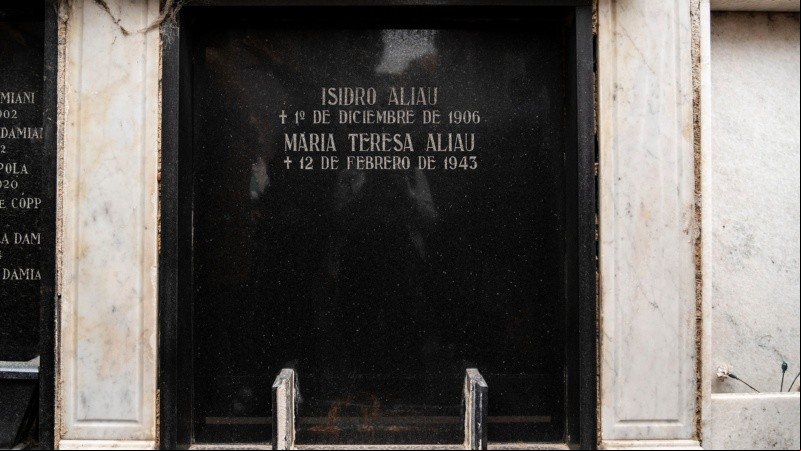 MIANI
DAMIA
POLA
E COPP
A DAM
DAMIA
ISIDRO ALIAU
✝ 1º DE DICIEMBRE DE 1906
MARIA TERESA ALIAU
✝ 12 DE FEBRERO DE 1943